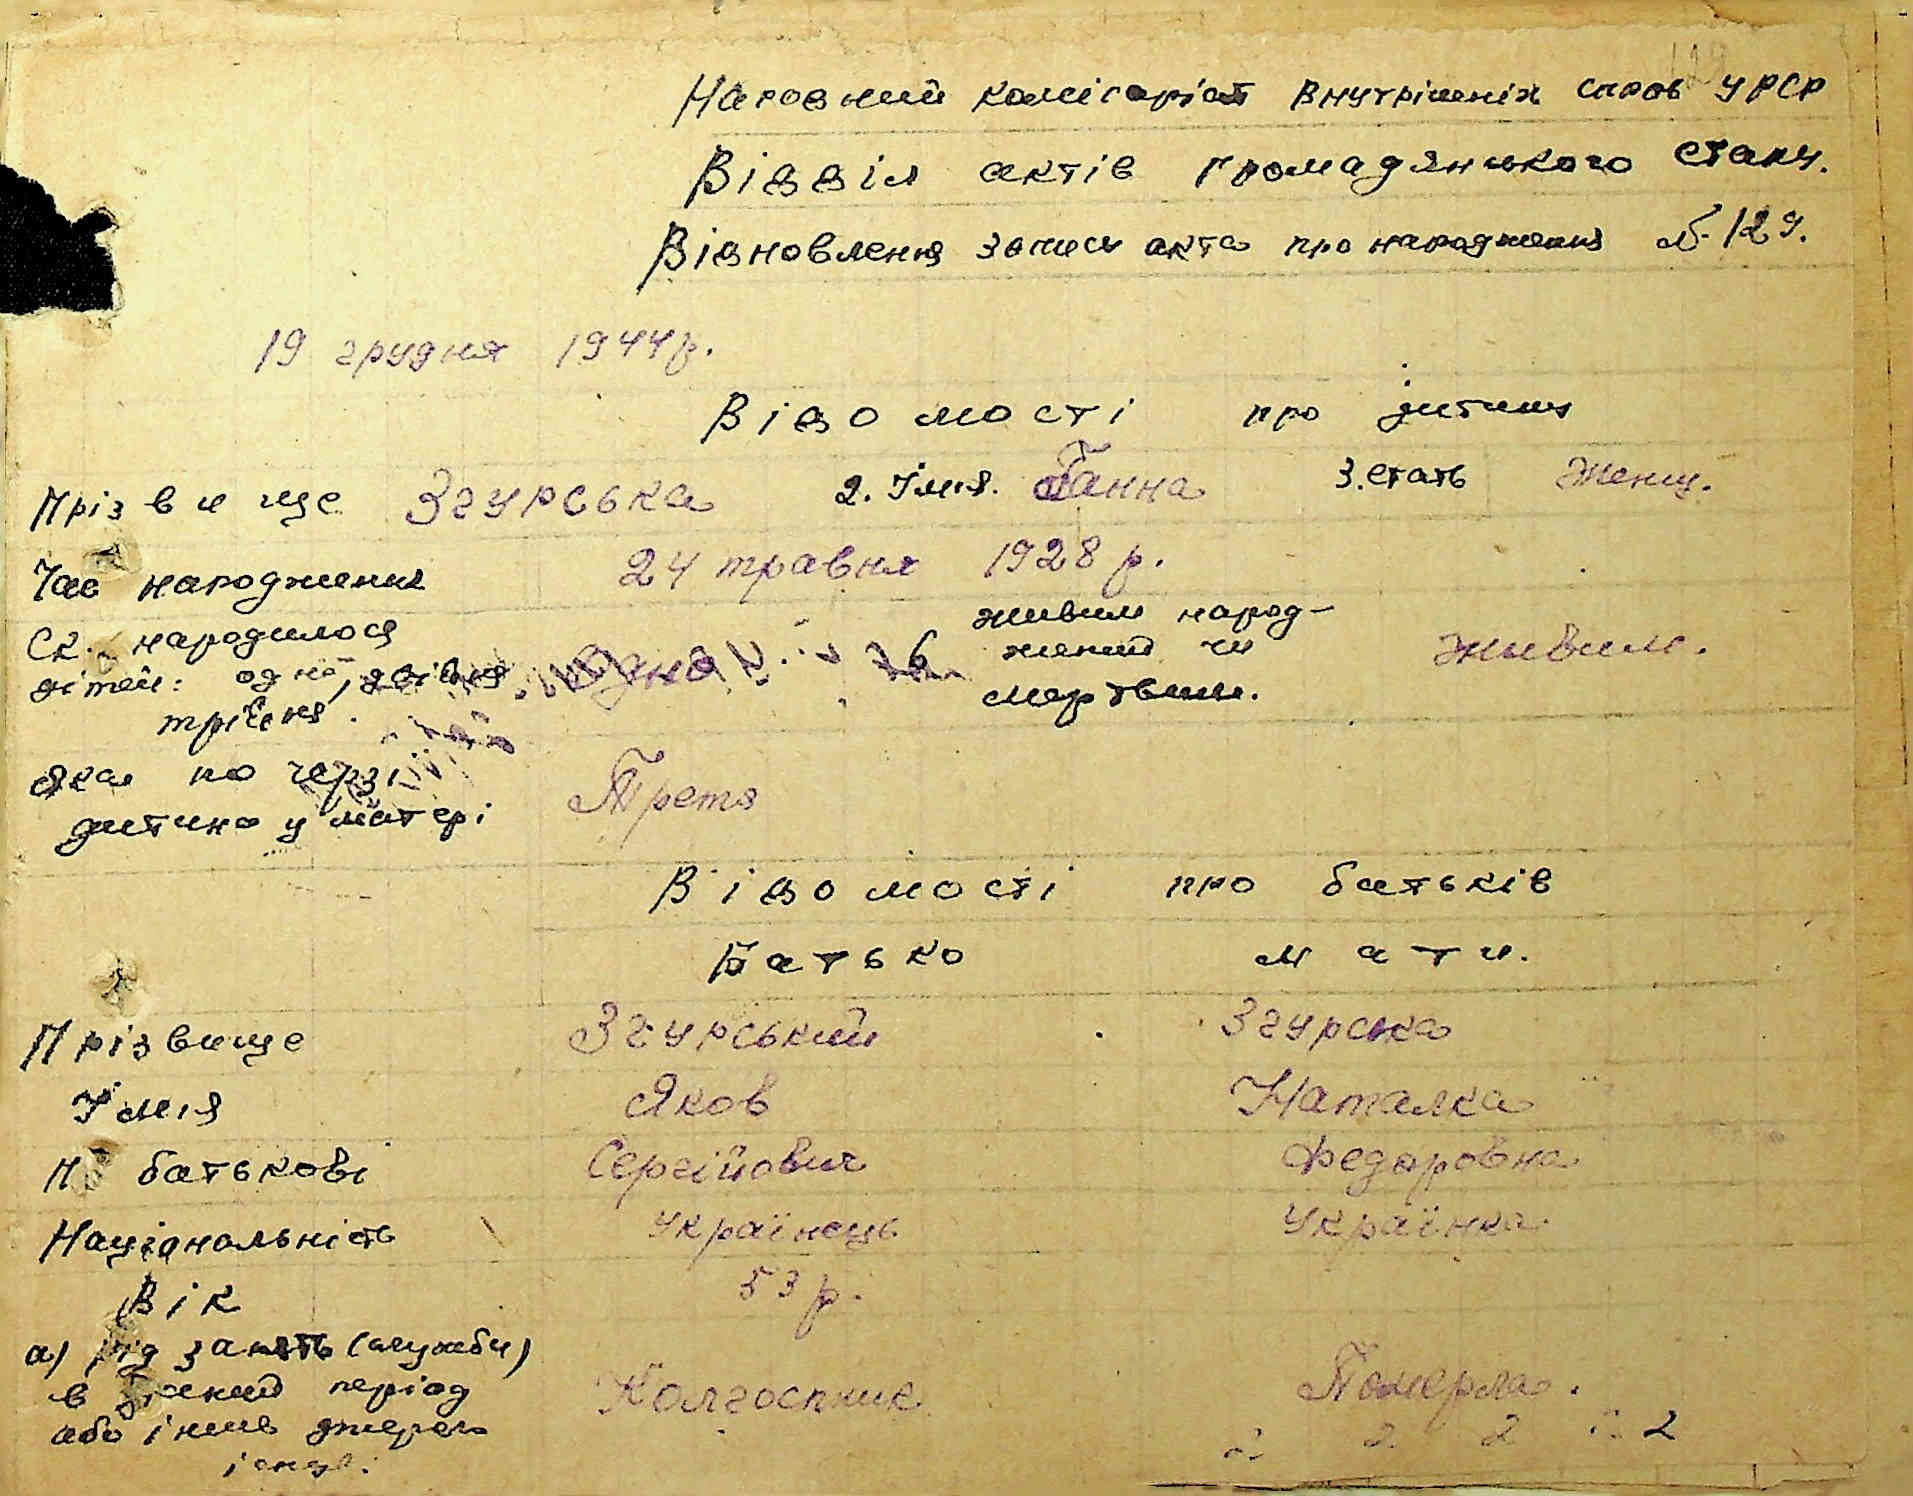 Народний комісаріат внутрішніх справ УРСР
Відділ актів громадянського стану.
Відновлення запису акта про народження № 129.
19 грудня 1944 р.
Відомості про дитину
Прізвище Згурська 2. Ім'я. Ганна 3. стать Женщ.
Час народження 24 травня 1928 р.
Ск. народилося
дітей: одно, двійня
трійня.
одна
живим народ-
жений чи
мертвим.
живим.
Яка по черзі
дитина у матері Третя
Відомості про батьків
Батько Мати.
Прізвище Згурський Згурська
Ім'я Яков Наталка
По батькові Сергійович Федоровна
Національність Українець Українка
Вік 53 р.
а) рід занять (служби)
в період
або інше джерело
існув.
Колгоспник Померла.